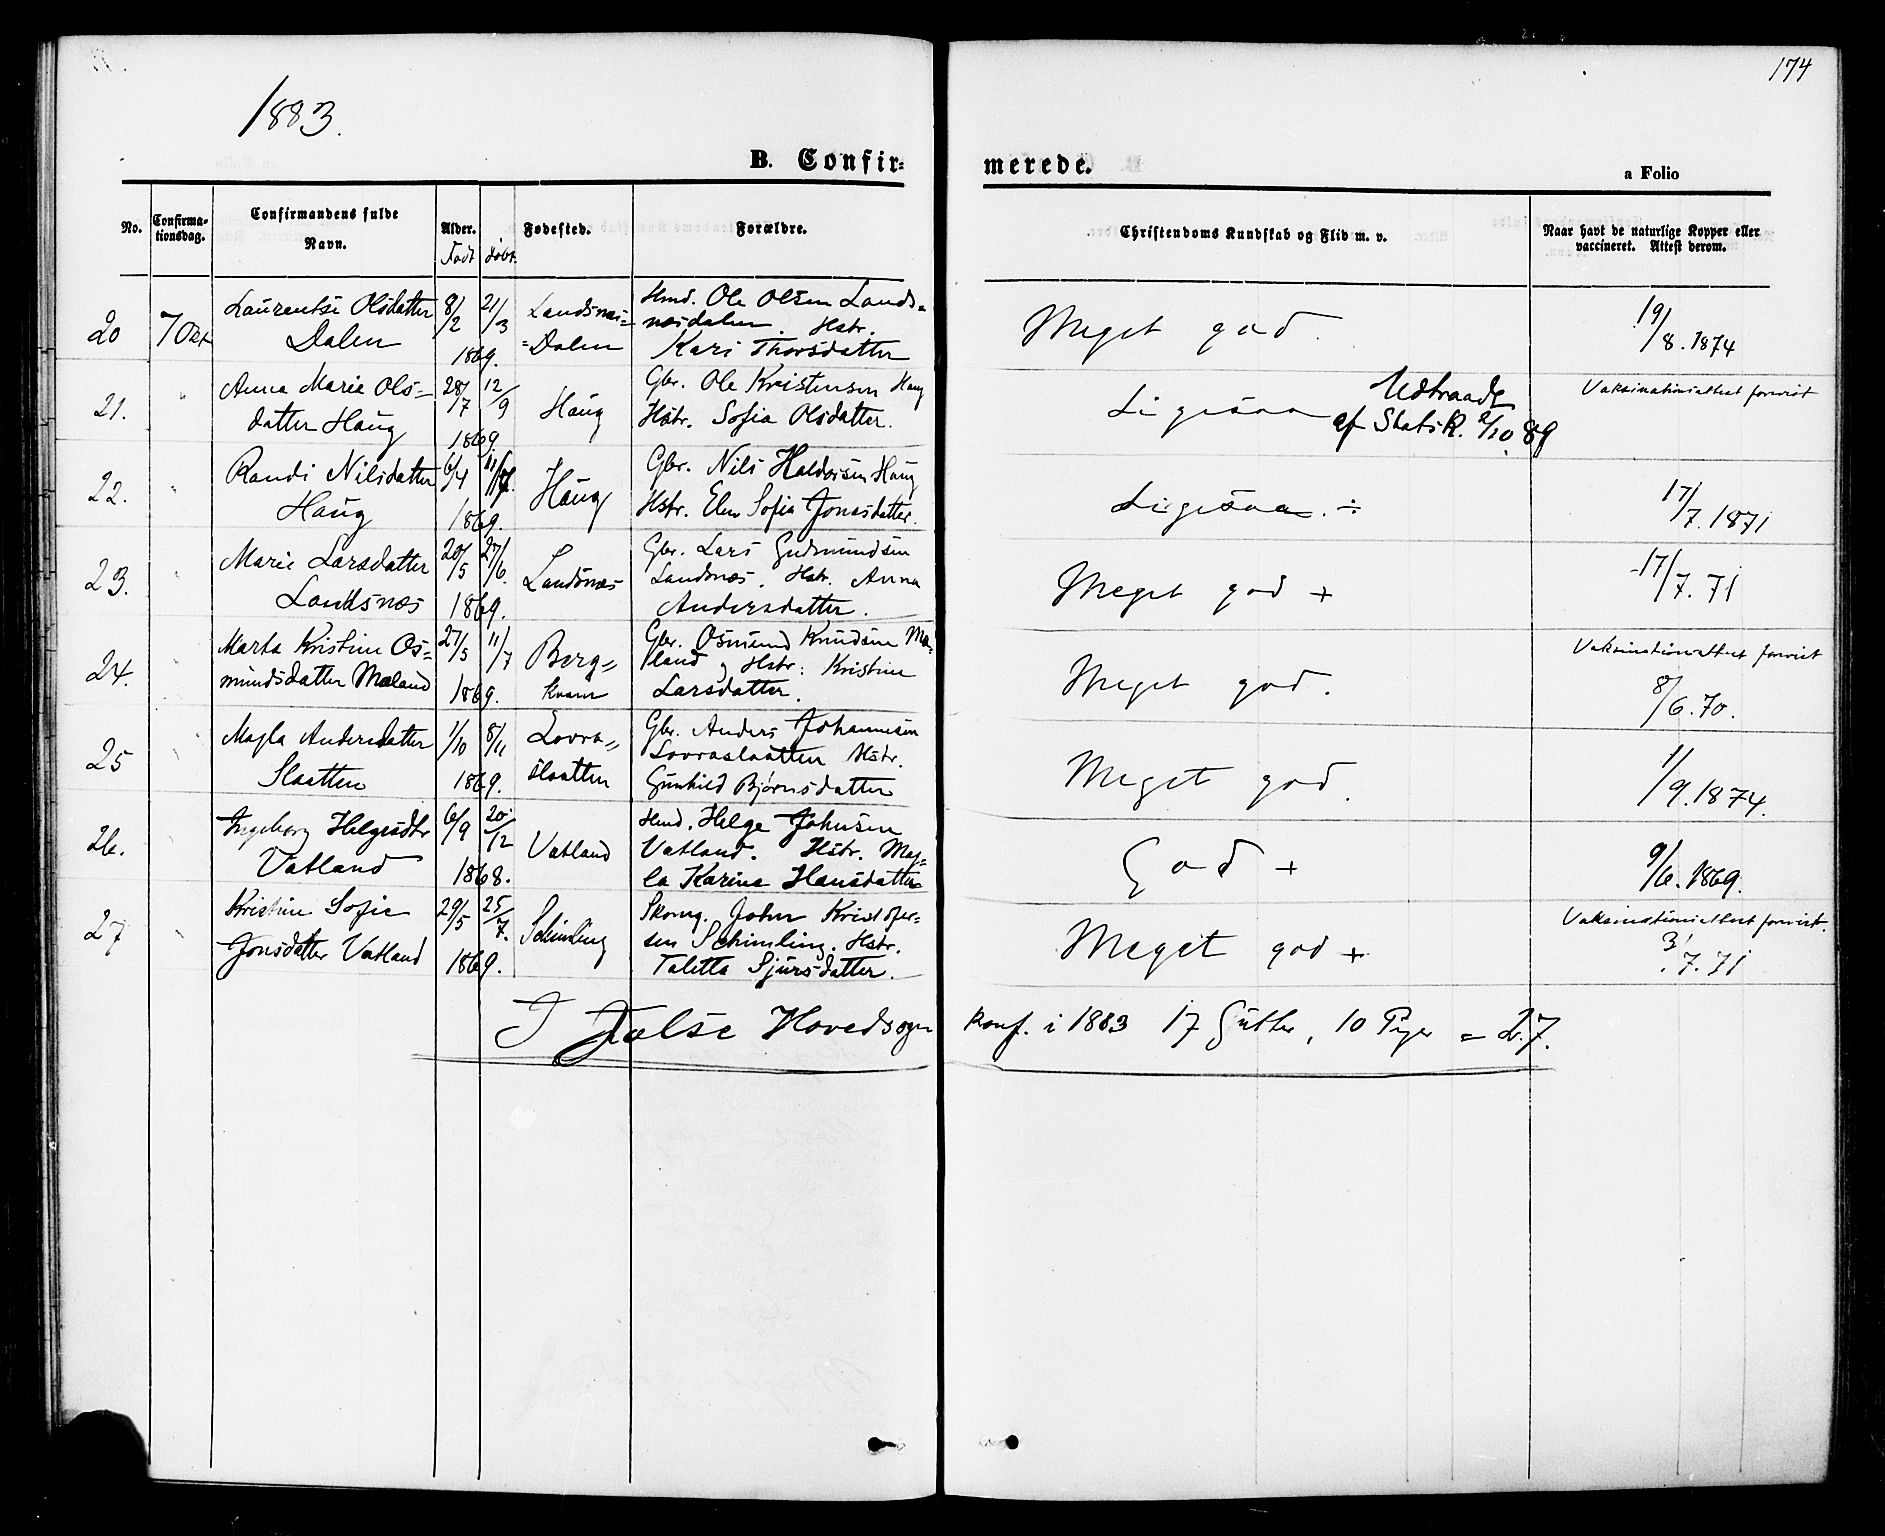 174
1883.
B. Confir-
merede.
a Folio
No.
Confirma-
tionsdag.
Confirmandens fulde
Navn.
Alder.
Født døbt.
Fødested.
Forældre.
Christendoms Kundskab og Flid m. v.
Naar havt de naturlige Kopper eller
vaccineret. Attest derom.
20 7 Okt
Laurentse Olsdatter
Dalen
8/2 21/3
1869.
Landsnæs=
=Dalen
Hmd. Ole Olsen Lands=
næsdalen. Hstr.
Kari Thorsdatter
Meget god.
19/8. 1874
21. "
Anna Marie Ols=
datter Haug
28/7 12/9
1869.
Haug
Gbr. Ole Kristensen Haug
Hstr. Sofia Olsdatter.
Ligesaa
Udtraadt
af StatsK. 2/10 89
Vaksinationsattest forevist
22. "
Randi Nilsdatter
Haug
6/4 11/7.
1869.
Haug
Gbr. Nils Haldorsen Haug
Hstr. Elen Sofia Jonasdatter.
Ligesaa. ÷
17/7. 1871
23. "
Marie Larsdatter
Landsnæs
20/5 27/6.
1869.
Landsnæs
Gbr. Lars Gudmundsen
Landsnæs. Hstr. Anna
Andersdatter.
Meget god +
17/7. 71
24. "
Marta Kristine Os=
mundsdatter Mæland
27/5 11/7
1869.
Berg=
kvam
Gbr. Osmund Knudsen Mæ=
land og Hstr: Kristine
Larsdatter.
Meget god.
Vaksinationsattest forevist
8/6. 70.
25 "
Magla Andersdatter
Slaatten
1/10 8/11
1869.
Lovra=
slaatten
Gbr. Anders Johannesen
Lovraslaatten Hstr.
Gunhild Bjørnsdatter
Meget god.
1/9. 1874.
26.
Ingeborg Helgesdtr
Vatland
6/9 20/12
1868.
Vatland
Hmd. Helge Johnsen
Vatland. Hstr. Mag=
la Karine Hansdatter
God +
9/6. 1869.
27 "
Kristine Sofie
Jonsdatter Vatland
29/5 25/7.
1869.
Schimling
Skomg. John Kristofer=
sen Schimling. Hstr.
Taletta Sjursdatter.
Meget god +
Vaksinationsattest forevist.
3/7. 71
I Jælse Hovedsogn konf. i 1883 17 Gutter, 10 Piger = 27.